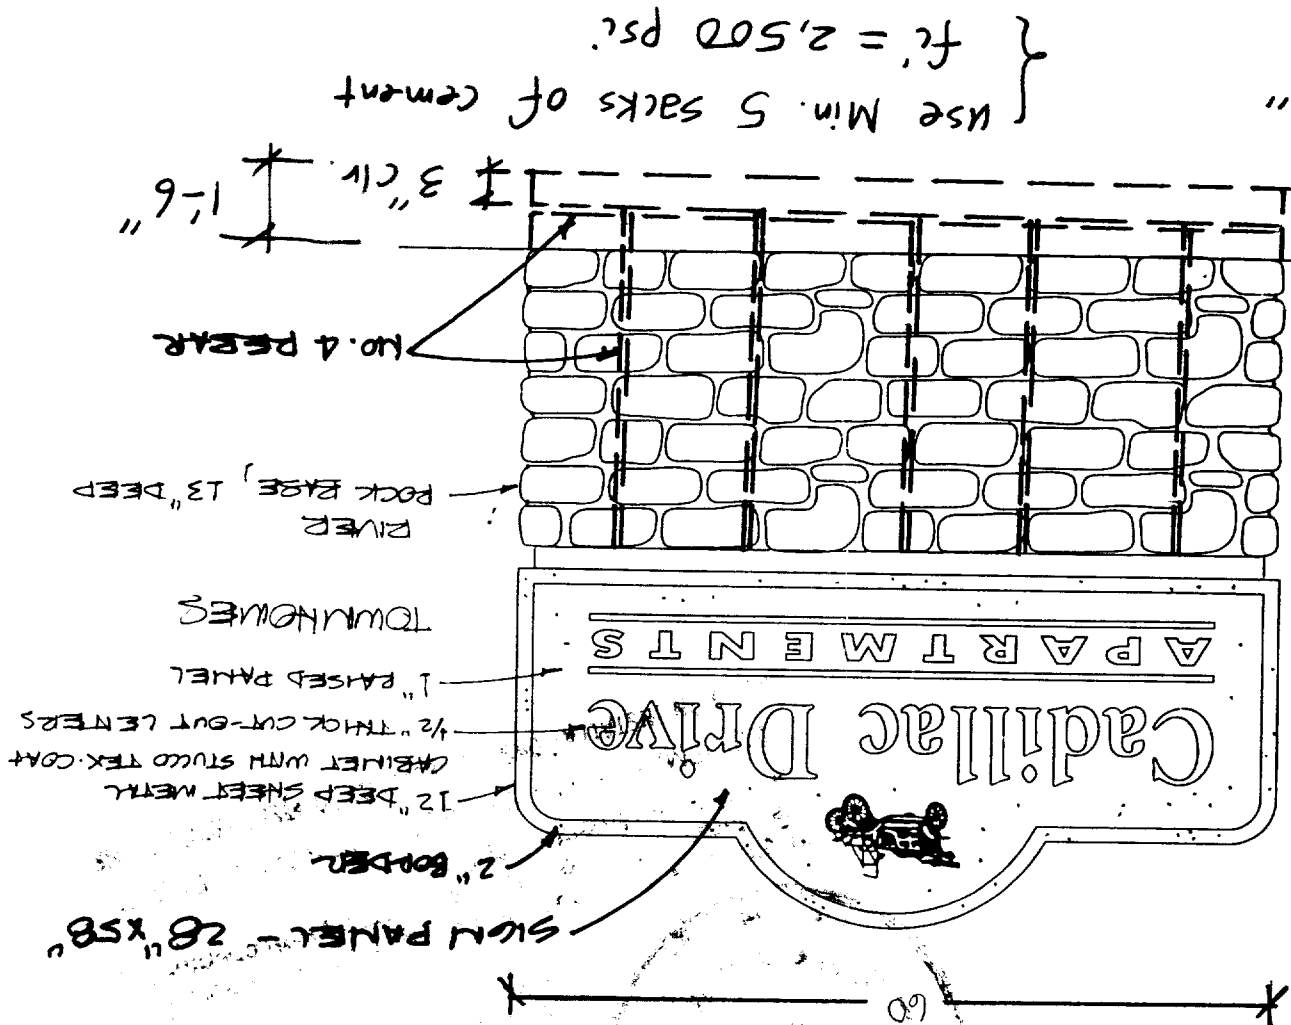 60
SIGN PANEL - 28" x 58"
2" BORDER
12" DEEP SHEET METAL
CABINET WITH STUCCO TEX-COAT
1/2" THICK CUT-OUT LETTERS
1" RAISED PANEL
TOWNHOMES
Cadillac Drive
APARTMENTS
RIVER
ROCK BASE, 13" DEEP
NO. 4 REBAR
1'-6"
3" clr.
use Min. 5 sacks of cement
fc' = 2,500 psi